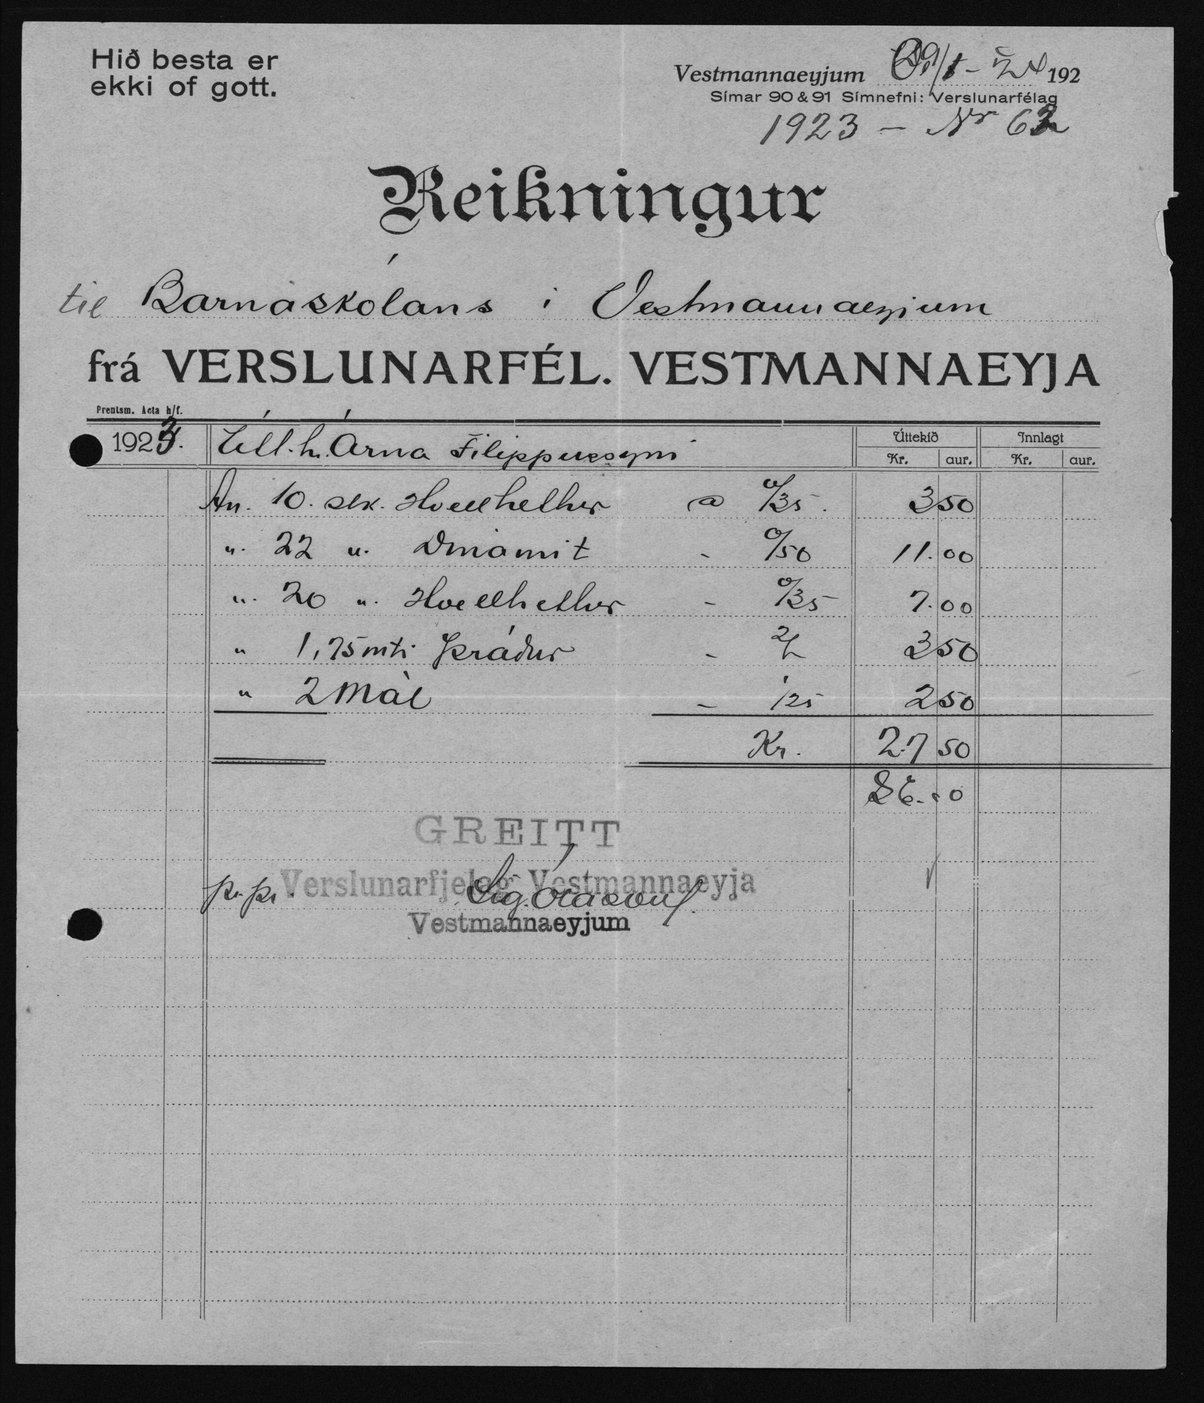 Hið besta er
ekki of gott.
Vestmannaeyjum 192
Símar 90 & 91 Símnefni: Verslunarfélag
1923 - Nr 62
Reikningur
til Barnaskólans í Vestmannaeyjum
frá VERSLUNARFÉL. VESTMANNAEYJA
Prentsm. Acta h/f.
1923. Árna Filippussyni Úttekið Innlagt
Kr. aur. Kr. aur.
An. 10. stk. Hvellhettur a 0/35. 3 50
". 22 ". Dinamit - 0/50 11.00
". 20 ". Hvellhettur - 0/35 7.00
" 1,75 mtr. þráður - 2/- 3 50
" 2 Mál - 1/25 2 50
Kr. 27 50
GREITT
pr. pr. Verslunarfjelag Vestmannaeyja
Vestmannaeyjum